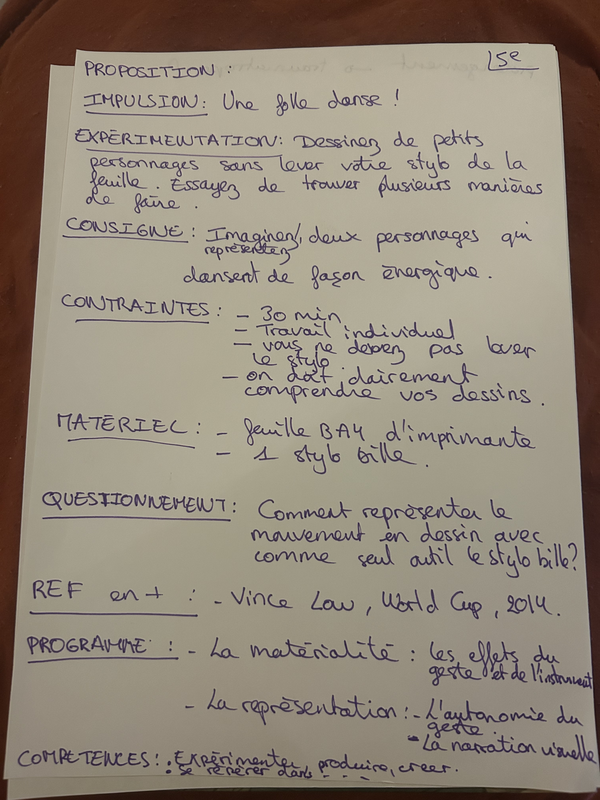 5e
PROPOSITION :
IMPULSION : Une folle danse !
EXPÉRIMENTATION : Dessinez de petits
personnages sans lever votre stylo de la
feuille. Essayez de trouver plusieurs manières
de faire.
CONSIGNE : Imaginez/ deux personnages qui
représentez
dansent de façon énergique.
CONTRAINTES : - 30 min
- Travail individuel
- vous ne devez pas lever
le stylo
- on doit clairement
comprendre vos dessins.
MATÉRIEL : - feuille BA4 d'imprimante
- 1 stylo bille.
QUESTIONNEMENT : Comment représenter le
mouvement en dessin avec
comme seul outil le stylo bille ?
REF en + : - Vince Low, World Cup, 2014.
PROGRAMME : - La matérialité : les effets du
geste et de l'instrument
- La représentation : - L'autonomie du
geste.
- La narration visuelle
COMPÉTENCES : . Expérimenter, produire, créer.
. Se repérer dans - - -